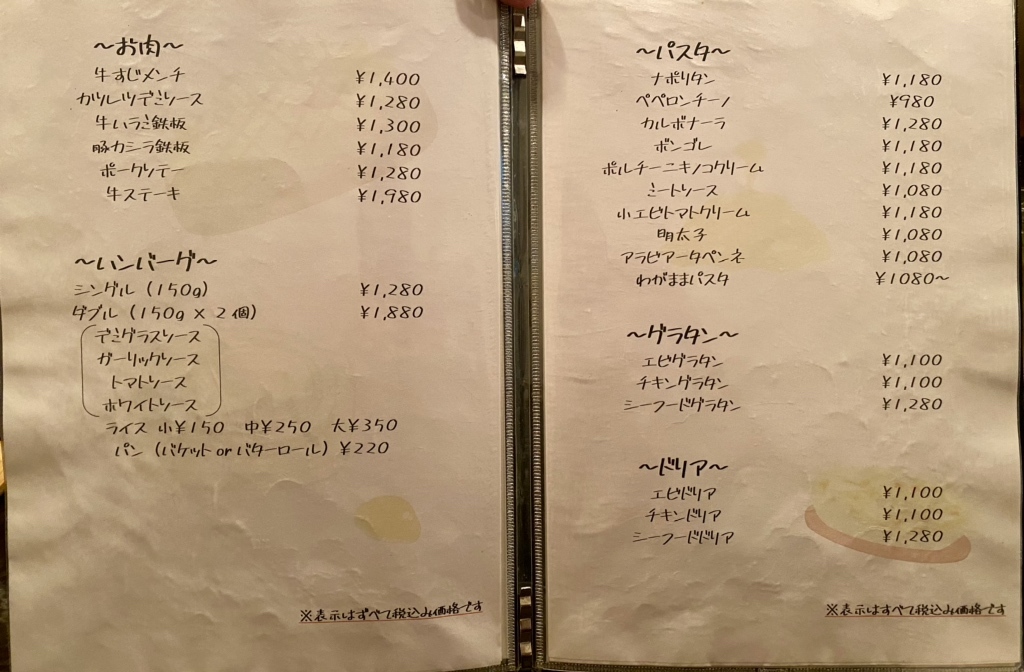 〜お肉〜
牛すじメンチ ¥1,400
カツレツデミソース ¥1,280
牛ハラミ鉄板 ¥1,300
豚カシラ鉄板 ¥1,180
ポークソテー ¥1,280
牛ステーキ ¥1,980
〜ハンバーグ〜
シングル (150g) ¥1,280
ダブル (150g × 2個) ¥1,880
デミグラスソース
ガーリックソース
トマトソース
ホワイトソース
ライス 小¥150 中¥250 大¥350
パン (バケット or バターロール) ¥220
※表示はすべて税込み価格です
〜パスタ〜
ナポリタン ¥1,180
ペペロンチーノ ¥980
カルボナーラ ¥1,280
ボンゴレ ¥1,180
ポルチーニキノコクリーム ¥1,180
ミートソース ¥1,080
小エビトマトクリーム ¥1,180
明太子 ¥1,080
アラビアータペンネ ¥1,080
わがままパスタ ¥1080〜
〜グラタン〜
エビグラタン ¥1,100
チキングラタン ¥1,100
シーフードグラタン ¥1,280
〜ドリア〜
エビドリア ¥1,100
チキンドリア ¥1,100
シーフードドリア ¥1,280
※表示はすべて税込み価格です